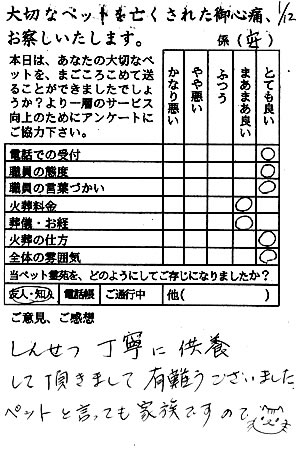 大切なペットを亡くされた御心痛、
お察しいたします。 係(安) 1/12
本日は、あなたの大切なペットを、まごころこめて送ることができましたでしょうか?より一層のサービス向上のためにアンケートにご協力下さい。
かなり悪い
やや悪い
ふつう
まあまあ良い
とても良い
電話での受付 ○
職員の態度 ○
職員の言葉づかい ○
火葬料金 ○
葬儀・お経 ○
火葬の仕方 ○
全体の雰囲気 ○
当ペット霊苑を、どのようにしてご存じになりましたか?
友人・知人 電話帳 ご通行中 他( )
ご意見、ご感想
しんせつ 丁寧に 供養
して頂きまして 有難うございました
ペットと言っても家族ですので